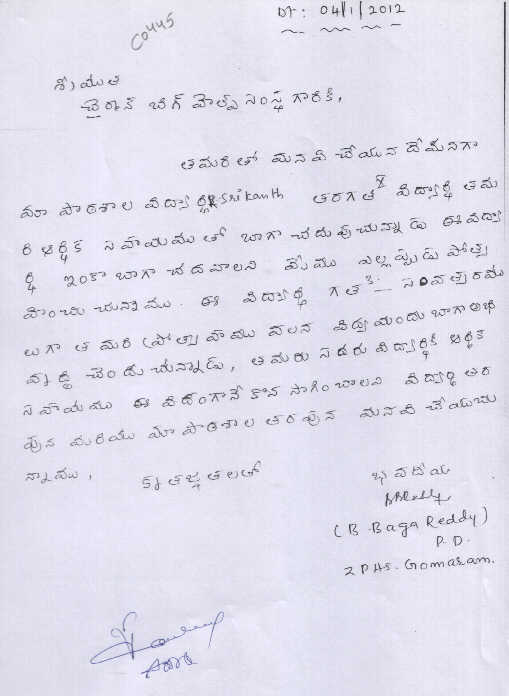 C0445
Dt: 04/1/2012
శ్రీయుత
చైర్మన్ బిగ్ హెల్ప్ సంస్థ గారికి,
తమరితో మనవి చేయున దేమనగా
మా పాఠశాల విద్యార్థి K Srikanth తరగతి 8 విద్యార్థి తమ
రి ఆర్థిక సహాయము తో బాగా చదువుచున్నాడు ఈ విద్యా
ర్థి ఇంకా బాగా చదవాలని మేము ఎల్లప్పుడు ప్రోత్స
హించు చున్నాము. ఈ విద్యార్థి గత సంవత్సరము
లుగా తమరి ప్రోత్సాహము వలన విద్య యందు బాగా అభి
వృద్ధి చెందు చున్నాడు, తమరు సదరు విద్యార్థికి ఆర్థిక
సహాయము ఈ విధంగానే కొన సాగించాలని విద్యార్థి తర
పున మరియు మా పాఠశాల తరపున మనవి చేయుచు
న్నాము,
కృతజ్ఞతలతో
భవదీయ
(B. Baga Reddy)
P.D.
ZPHS. Gomaram.